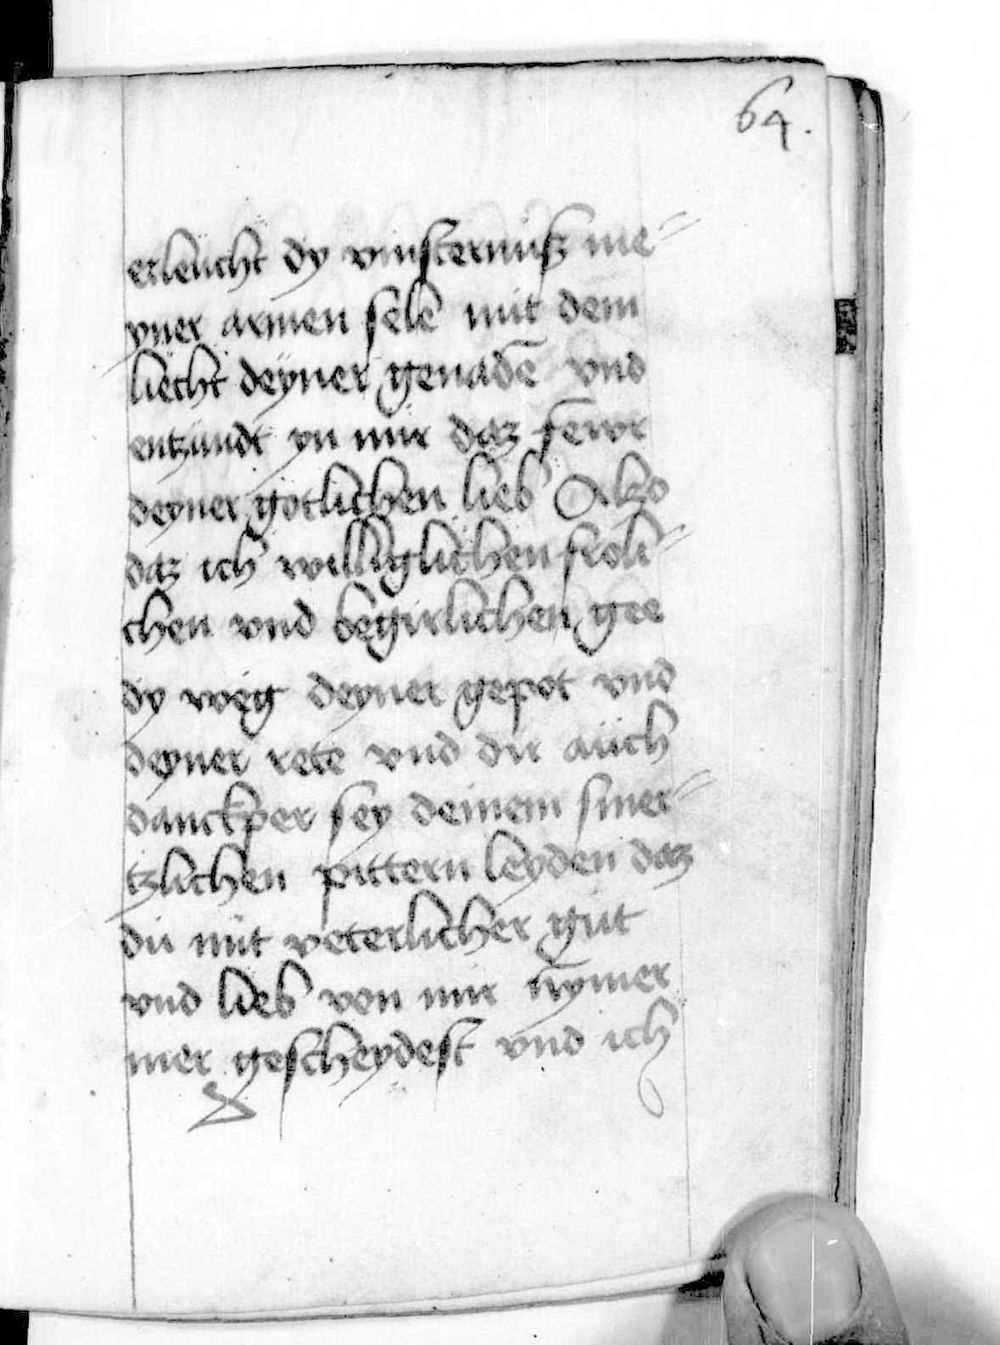 64.
erleucht dy vinsternüsz me=
yner armen sele mit dem
liecht deyner genadē vnd
entzündt yn mir daz fewr
deyner götlichen lieb Also
daz ich williglichen froli=
chen vnd begirlichen gee
dy weg deyner gepot vnd
deyner rete vnd dir aüch
danckper sey deinem smer=
tzlichen pittern leyden daz
dü mit veterlicher güt
vnd lieb von mir nȳmer
mer gescheydest vnd ich